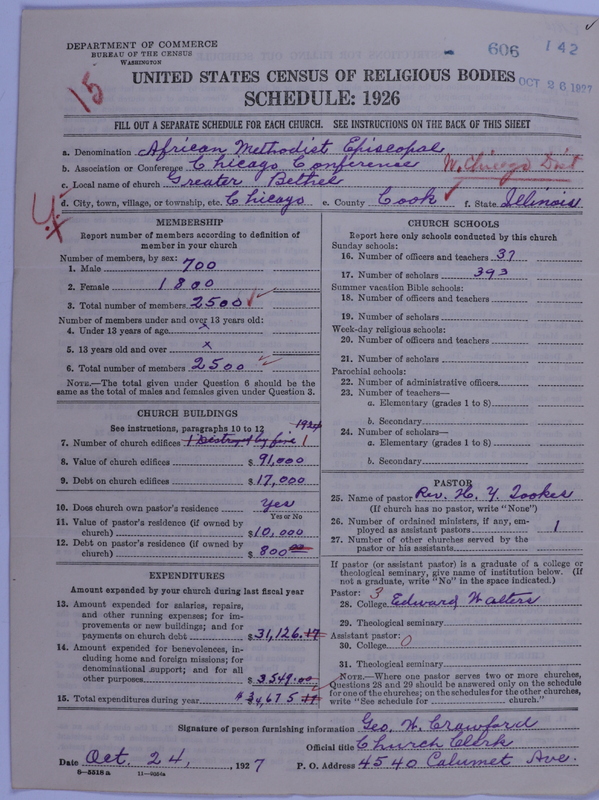 DEPARTMENT OF COMMERCE
BUREAU OF THE CENSUS
WASHINGTON
606 142
OCT 26 1927
15
UNITED STATES CENSUS OF RELIGIOUS BODIES
SCHEDULE: 1926
FILL OUT A SEPARATE SCHEDULE FOR EACH CHURCH. SEE INSTRUCTIONS ON THE BACK OF THIS SHEET
a. Denomination African Methodist Episcopal
b. Association or Conference Chicago Conference W. Chicago Dist
c. Local name of church Greater Bethel
d. City, town, village, or township, etc. Chicago e. County Cook f. State Illinois
MEMBERSHIP
Report number of members according to definition of member in your church
Number of members, by sex:
1. Male 700
2. Female 1800
3. Total number of members 2500
Number of members under and over 13 years old:
4. Under 13 years of age x
5. 13 years old and over x
6. Total number of members 2500
NOTE.—The total given under Question 6 should be the
same as the total of males and females given under Question 3.
CHURCH BUILDINGS
See instructions, paragraphs 10 to 12 1924
7. Number of church edifices 1 Destroyed by fire 1
8. Value of church edifices $ 91,000
9. Debt on church edifices $ 17,000
10. Does church own pastor's residence Yes
Yes or No
11. Value of pastor's residence (if owned by
church) $10,000
12. Debt on pastor's residence (if owned by
church) $ 800 00
EXPENDITURES
Amount expended by your church during last fiscal year
13. Amount expended for salaries, repairs,
and other running expenses; for im-
provements or new buildings; and for
payments on church debt $31,126.17
14. Amount expended for benevolences, in-
cluding home and foreign missions; for
denominational support; and for all
other purposes $3549.00
15. Total expenditures during year $34,675 17
CHURCH SCHOOLS
Report here only schools conducted by this church
Sunday schools:
16. Number of officers and teachers 37
17. Number of scholars 393
Summer vacation Bible schools:
18. Number of officers and teachers
19. Number of scholars
Week-day religious schools:
20. Number of officers and teachers
21. Number of scholars
Parochial schools:
22. Number of administrative officers
23. Number of teachers—
a. Elementary (grades 1 to 8)
b. Secondary
24. Number of scholars—
a. Elementary (grades 1 to 8)
b. Secondary
PASTOR
25. Name of pastor Rev. H. Y. Tookes
(If church has no pastor, write "None")
26. Number of ordained ministers, if any, em-
ployed as assistant pastors 1
27. Number of other churches served by the
pastor or his assistants
If pastor (or assistant pastor) is a graduate of a college or
theological seminary, give name of institution below. (If
not a graduate, write "No" in the space indicated.)
Pastor: 3
28. College Edward Walters
29. Theological seminary
Assistant pastor: 0
30. College
31. Theological seminary
NOTE.—Where one pastor serves two or more churches,
Questions 28 and 29 should be answered only on the schedule
for one of the churches; on the schedules for the other churches,
write "See schedule for church."
Signature of person furnishing information Geo. W. Crawford
Official title Church Clerk
Date Oct. 24, , 1927 P. O. Address 4540 Calumet Ave.
8—5518 a